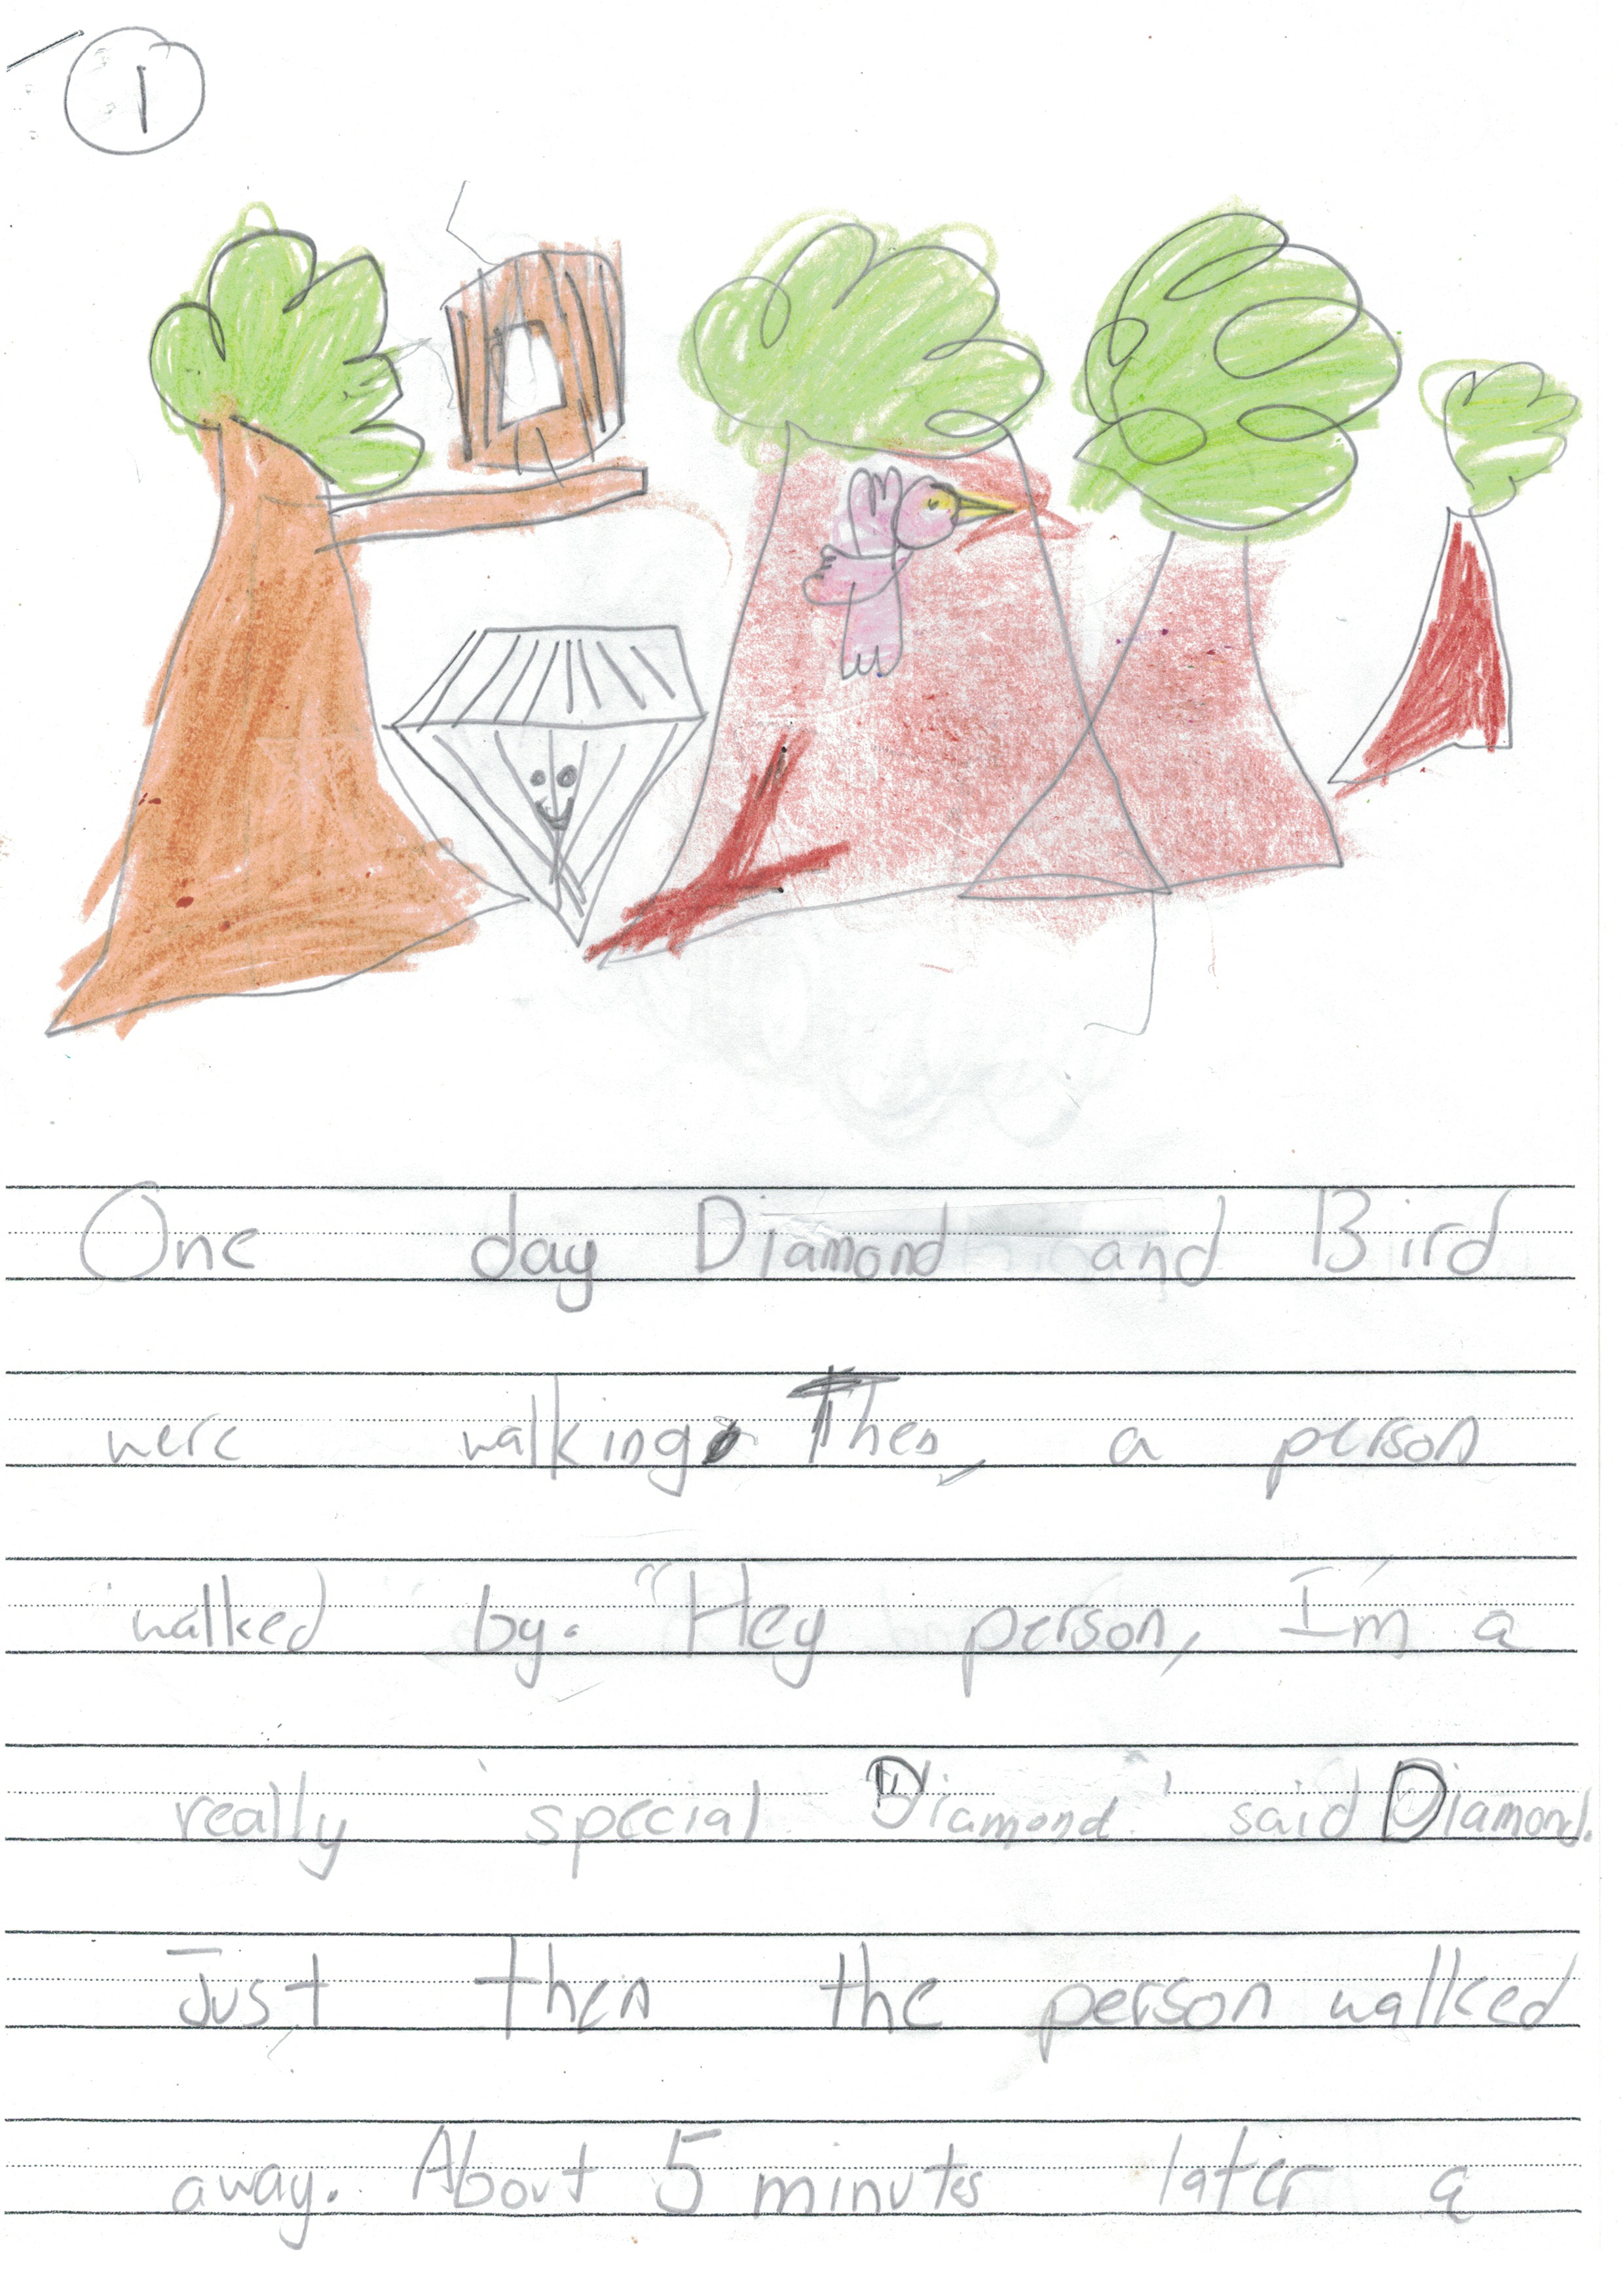 1
One day Diamond and Bird
were walking. Then, a person
walked by. "Hey person, I'm a
really special Diamond" said Diamond.
Just then the person walked
away. About 5 minutes later a